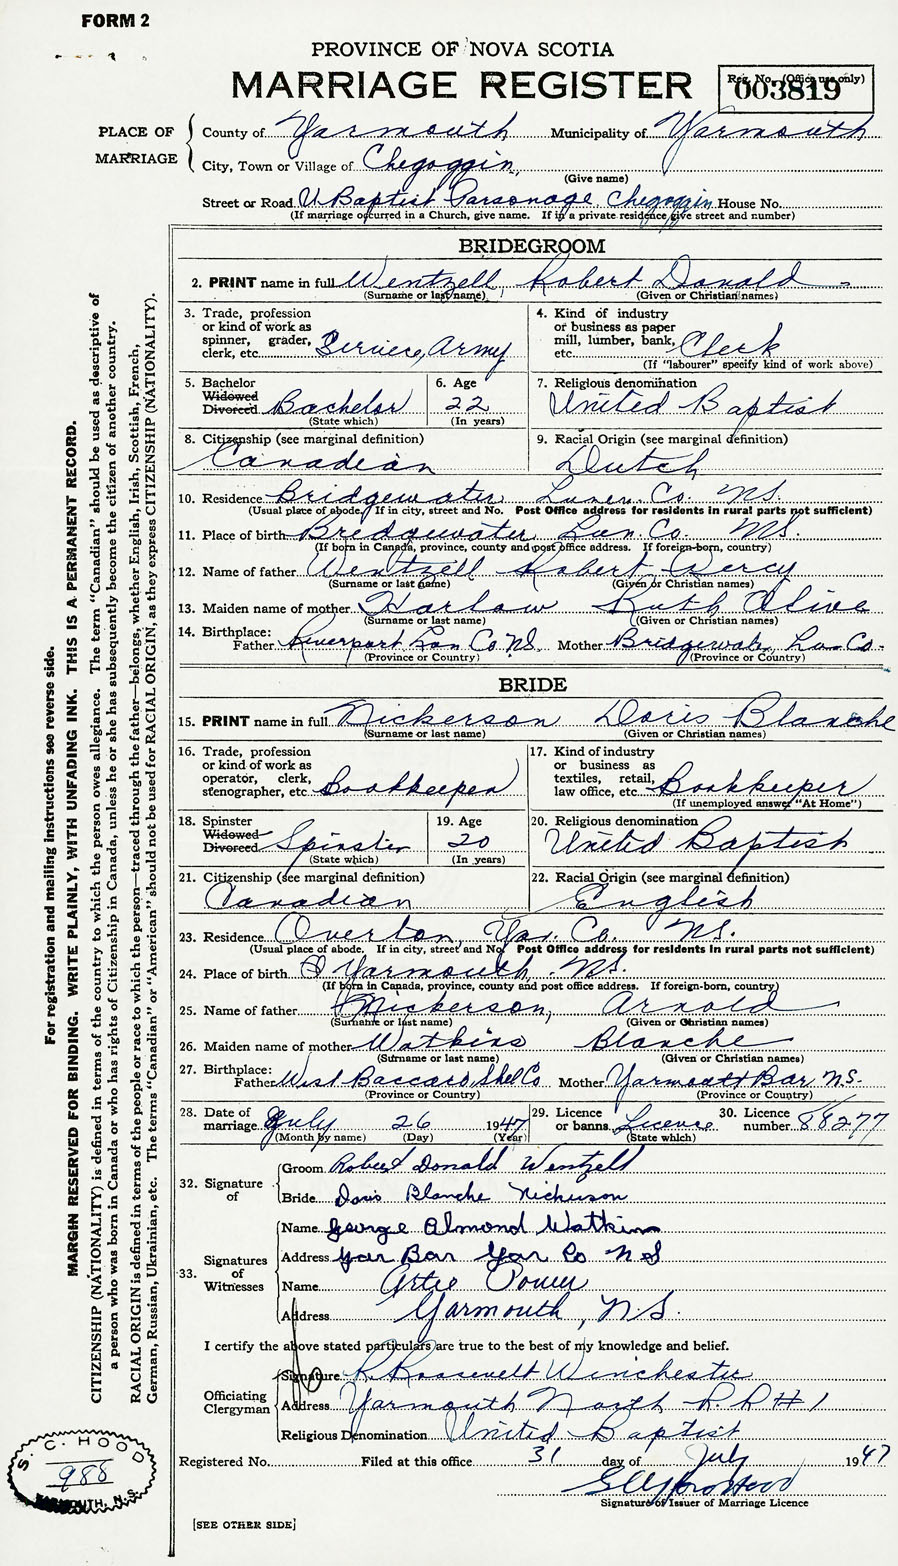 FORM 2
PROVINCE OF NOVA SCOTIA
MARRIAGE REGISTER
Reg. No. (Office use only)
003819
PLACE OF MARRIAGE
County of Yarmouth Municipality of Yarmouth
City, Town or Village of Chegoggin
(Give name)
Street or Road U. Baptist Parsonage Chegoggin House No.
(If marriage occurred in a Church, give name. If in a private residence give street and number)
BRIDEGROOM
2. PRINT name in full Wentzell, Robert Donald
(Surname or last name) (Given or Christian names)
3. Trade, profession or kind of work as spinner, grader, clerk, etc. Service, Army
4. Kind of industry or business as paper mill, lumber, bank, etc. Clerk
(If "labourer" specify kind of work above)
5. Bachelor Widowed Divorced Bachelor
(State which)
6. Age 22
(In years)
7. Religious denomination
United Baptist
8. Citizenship (see marginal definition)
Canadian
9. Racial Origin (see marginal definition)
Dutch
10. Residence Bridgewater Lunen. Co. N.S.
(Usual place of abode. If in city, street and No. Post Office address for residents in rural parts not sufficient)
11. Place of birth Bridgewater Lun. Co. N.S.
(If born in Canada, province, county and post office address. If foreign-born, country)
12. Name of father Wentzell Robert Percy
(Surname or last name) (Given or Christian names)
13. Maiden name of mother Harlow Ruth Olive
(Surname or last name) (Given or Christian names)
14. Birthplace: Father Riverport Lun Co N.S. Mother Bridgewater Lun Co.
(Province or Country) (Province or Country)
BRIDE
15. PRINT name in full Nickerson Doris Blanche
(Surname or last name) (Given or Christian names)
16. Trade, profession or kind of work as operator, clerk, stenographer, etc. Bookkeeper
17. Kind of industry or business as textiles, retail, law office, etc. Bookkeeper
(If unemployed answer "At Home")
18. Spinster Widowed Divorced Spinster
(State which)
19. Age 20
(In years)
20. Religious denomination
United Baptist
21. Citizenship (see marginal definition)
Canadian
22. Racial Origin (see marginal definition)
English
23. Residence Overton, Yar. Co. N.S.
(Usual place of abode. If in city, street and No. Post Office address for residents in rural parts not sufficient)
24. Place of birth Yarmouth N.S.
(If born in Canada, province, county and post office address. If foreign-born, country)
25. Name of father Nickerson, Arnold
(Surname or last name) (Given or Christian names)
26. Maiden name of mother Watkins Blanche
(Surname or last name) (Given or Christian names)
27. Birthplace: Father West Baccaro Shel Co Mother Yarmouth Bar N.S.
(Province or Country) (Province or Country)
28. Date of marriage July 26 1947
(Month by name) (Day) (Year)
29. Licence or banns Licence
(State which)
30. Licence number 88277
32. Signature of
Groom Robert Donald Wentzell
Bride Doris Blanche Nickerson
33. Signatures of Witnesses
Name George Almond Watkins
Address Yar Bar Yar Co N S
Name Artie
Address Yarmouth, N.S.
I certify the above stated particulars are true to the best of my knowledge and belief.
Officiating Clergyman
Signature R. Roosevelt Winchester
Address Yarmouth North R.R #1
Religious Denomination United Baptist
Registered No. Filed at this office 31 day of July 1947
Signature of Issuer of Marriage Licence
[SEE OTHER SIDE]
For registration and mailing instructions see reverse side.
MARGIN RESERVED FOR BINDING. WRITE PLAINLY, WITH UNFADING INK. THIS IS A PERMANENT RECORD.
CITIZENSHIP (NATIONALITY) is defined in terms of the country to which the person owes allegiance. The term "Canadian" should be used as descriptive of
a person who was born in Canada or who has rights of Citizenship in Canada, unless he or she has subsequently become the citizen of another country.
RACIAL ORIGIN is defined in terms of the people or race to which the person—traced through the father—belongs, whether English, Irish, Scottish, French,
German, Russian, Ukrainian, etc. The terms "Canadian" or "American" should not be used for RACIAL ORIGIN, as they express CITIZENSHIP (NATIONALITY).
S. C. HOOD
988
YARMOUTH, N.S.